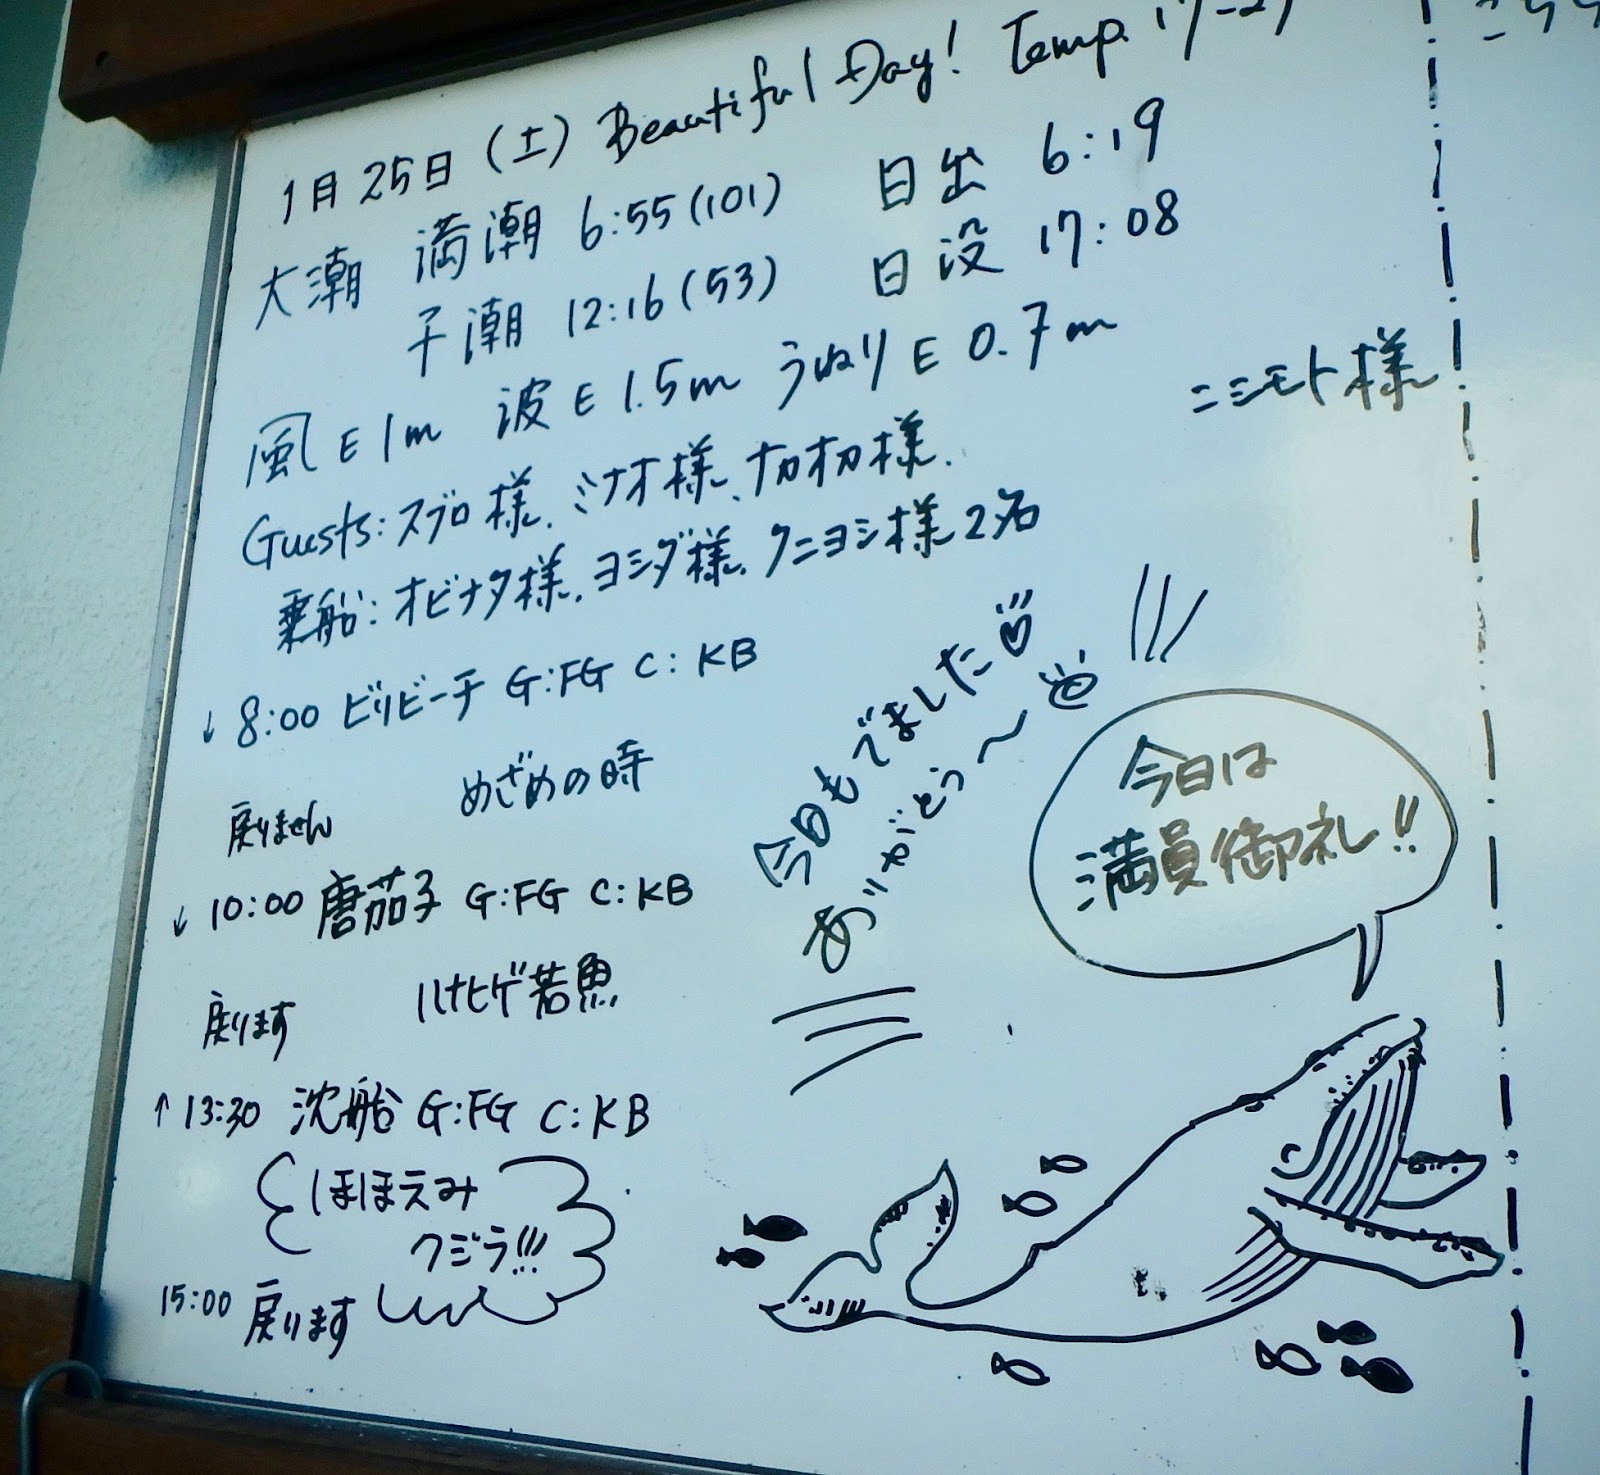 1月25日(土) Beautiful Day! Temp. 17-21
大潮 満潮 6:55(101) 日出 6:19
干潮 12:16(53) 日没 17:08
風 E 1m 波 E 1.5m うねり E 0.7m
ニシモト様
Guests: スブロ様、ミナオ様、ナカオカ様、
乗船: オビナタ様、ヨシダ様、クニヨシ様2名
↓ 8:00 ビリビーチ G:FG C:KB
めざめの時
戻りません
↓ 10:00 唐茄子 G:FG C:KB
ハナヒゲ若魚
戻ります
↑ 13:30 沈船 G:FG C:KB
ほほえみ
クジラ!!!
15:00 戻ります
今日もでました♡
ありがとう〜
今日は
満員御礼!!